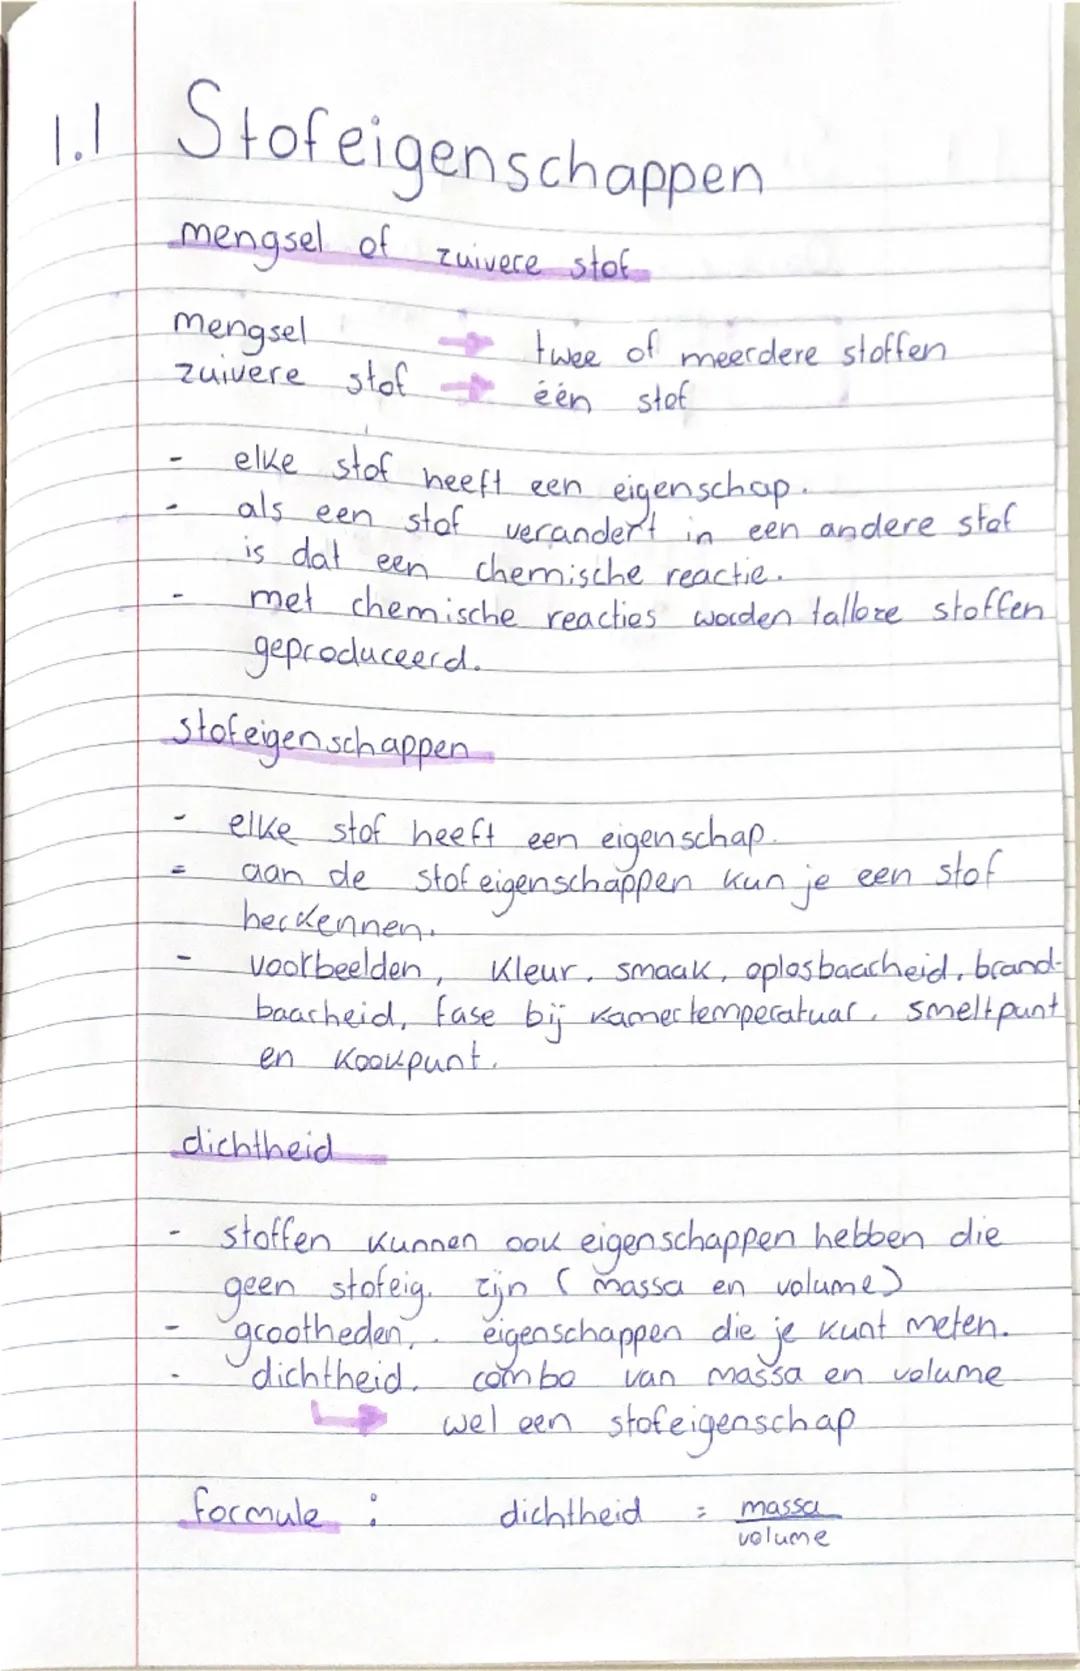 1.1 Stofeigenschappen
mengsel of zuivere stof
mengsel → twee of meerdere stoffen
zuivere stof → één stof
- elke stof heeft een eigenschap.
- als een stof verandert in een andere stof
is dat een chemische reactie.
- met chemische reacties worden talloze stoffen
geproduceerd.
stofeigenschappen
- elke stof heeft een eigenschap.
= aan de stofeigenschappen kun je een stof
herkennen.
- voorbeelden, kleur, smaak, oplosbaarheid, brand-
baarheid, fase bij kamertemperatuar, smeltpunt
en kookpunt.
dichtheid
- stoffen kunnen ook eigenschappen hebben die
geen stofeig. zijn (massa en volume)
- grootheden, . eigenschappen die je kunt meten.
- dichtheid. combo van massa en volume
↳ wel een stofeigenschap
formule : dichtheid = massa
volume